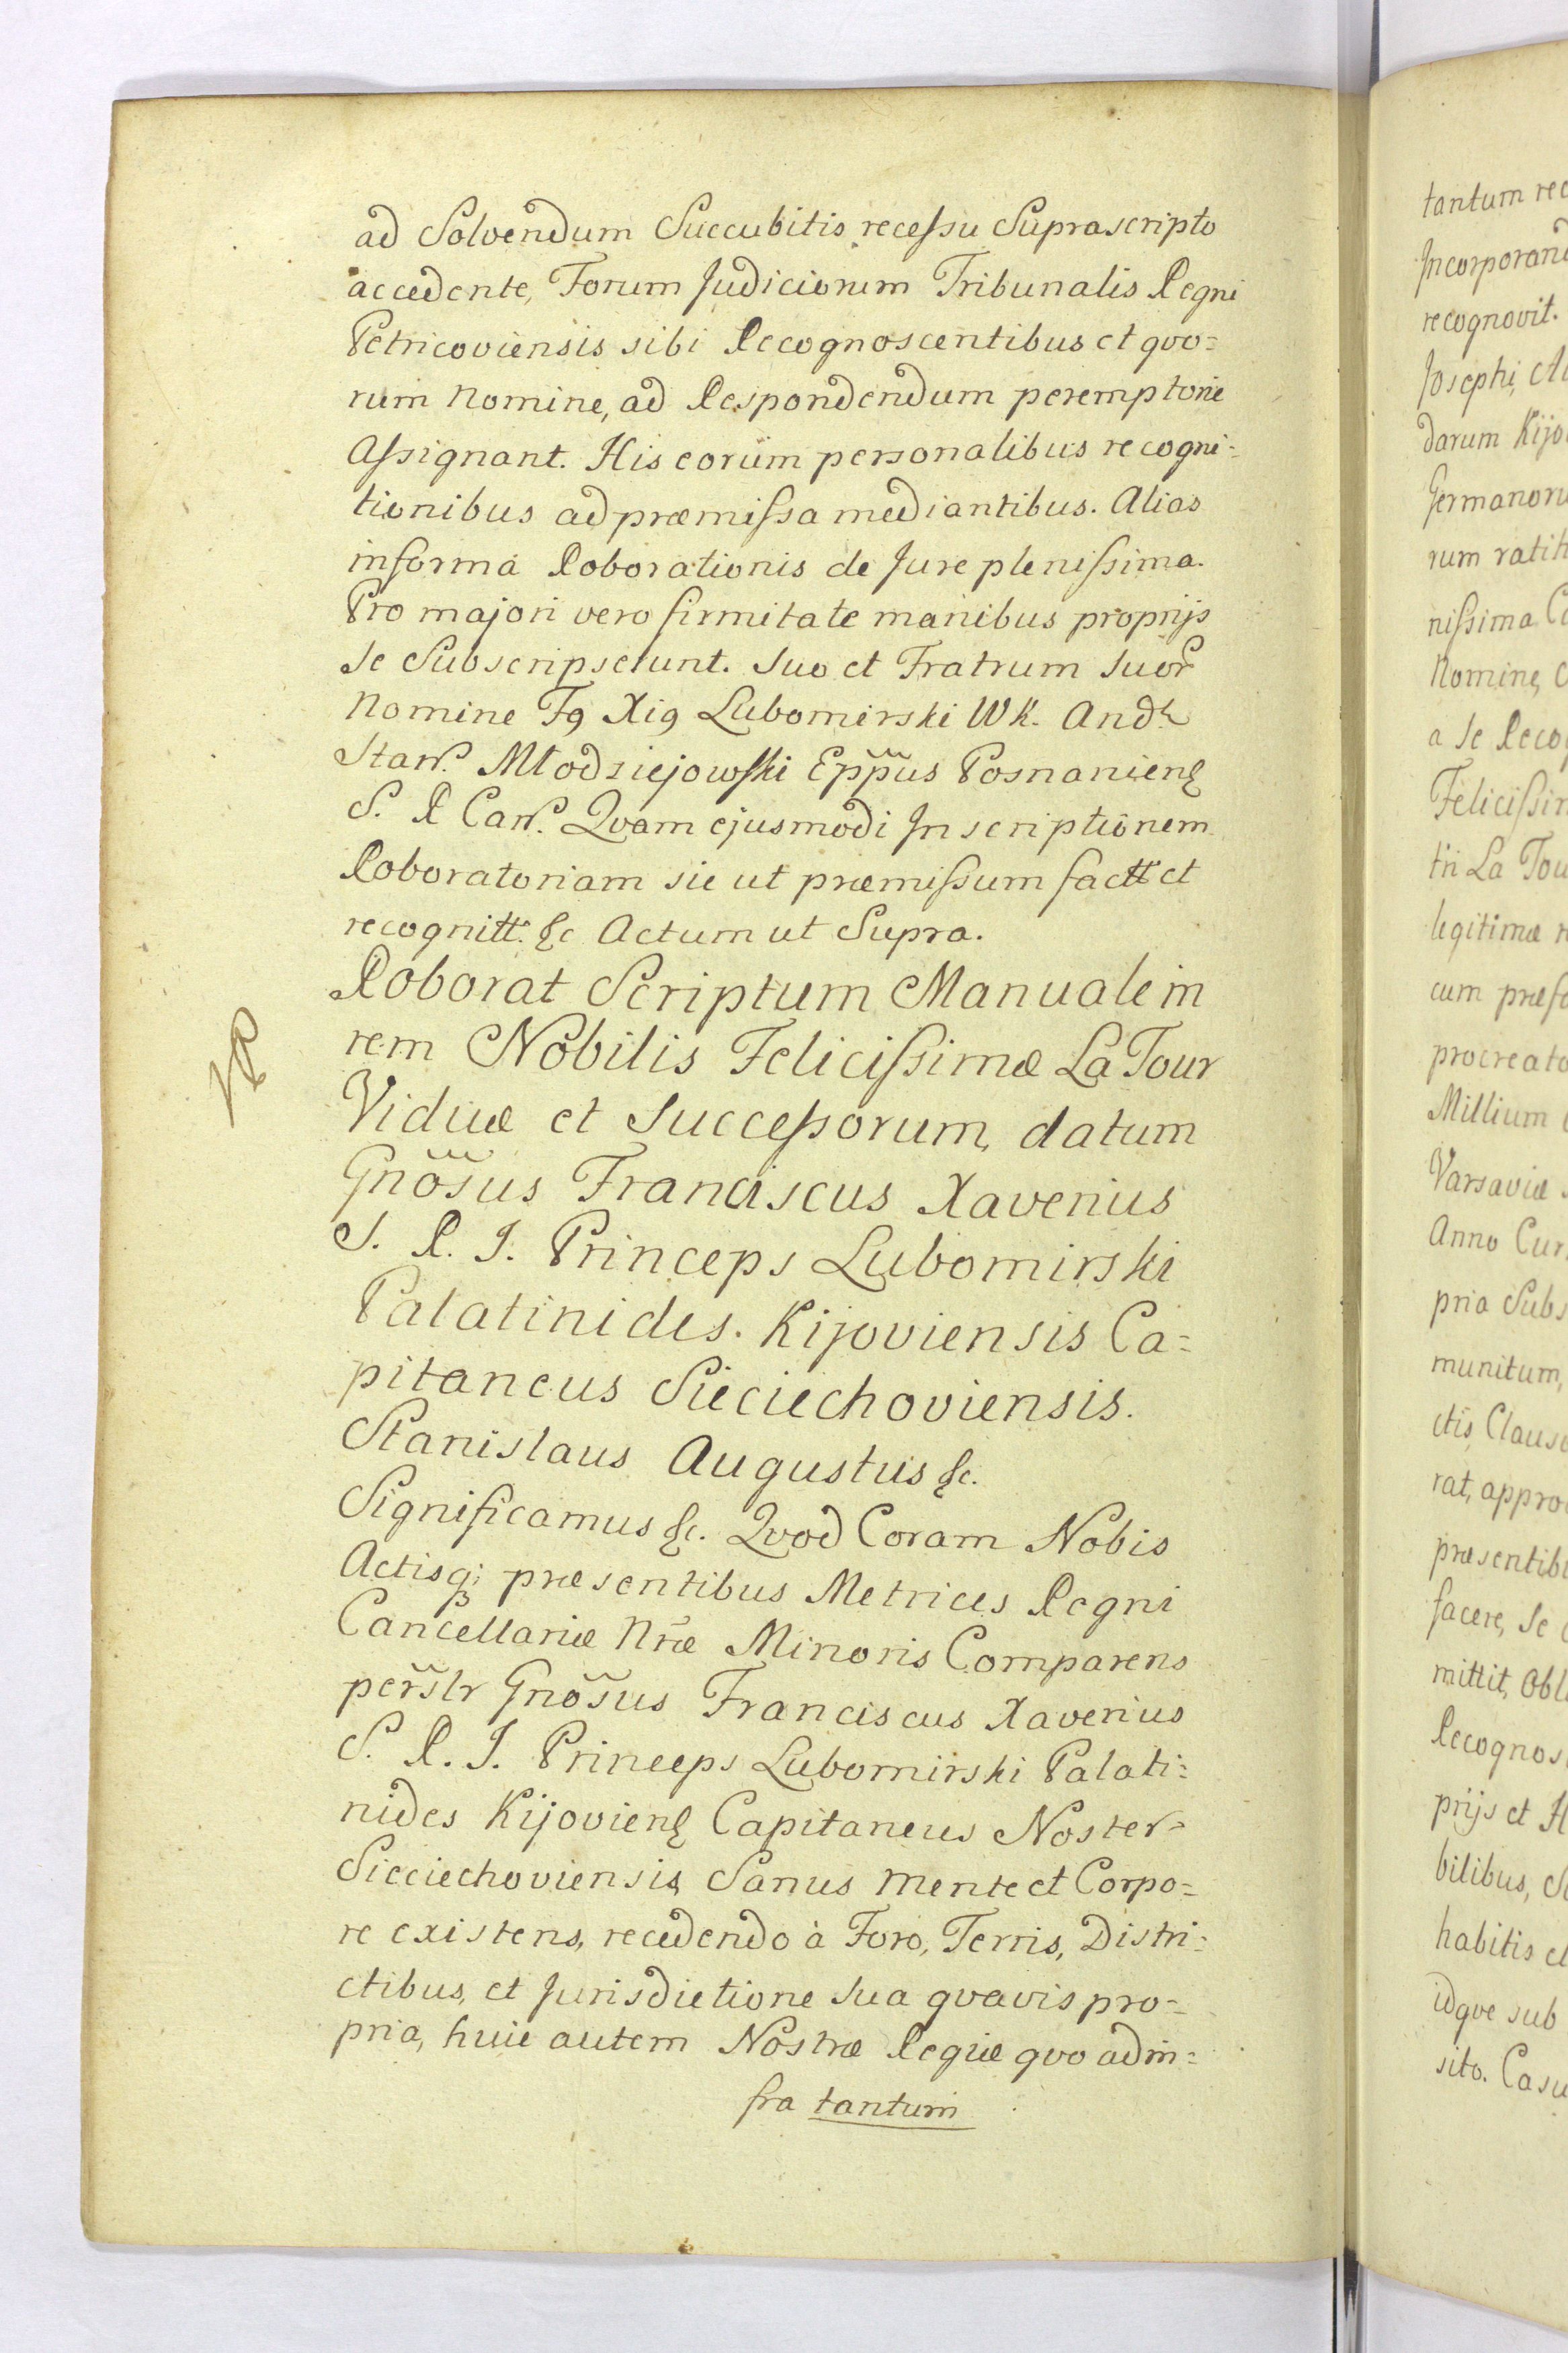 ad Solvendum Succubitis recessu Suprascripto
accedente, Forum Judiciorum Tribunalis Regni
Petricoviensis sibi Recognoscentibus et qvo=
rum Nomine, ad Respondendum peremptorie
Assignant. His eorum personalibus recogni=
tionibus ad præmissa mediantibus. Alias
in forma Roborationis de Jure plenissima.
Pro majori vero firmitate manibus proprijs
se Subscripserunt. Suo et Fratrum Suor
Nomine Lubomirski WK. And.
Młodziejowski Eppus Posnanien
S. R Can. Qvam ejusmodi Inscriptionem
Roboratoriam sic ut præmissum factt et
recognitt. &c Actum ut Supra.
Roborat Scriptum Manuale in
rem Nobilis Felicissimæ La Tour
Viduæ et Successorum, datum
Gnosus Franciscus Xaverius
S. R. I. Princeps Lubomirski
Palatinides. Kijoviensis Ca=
pitaneus Sieciechoviensis.
Stanislaus Augustus &c.
Significamus &c. Qvod Coram Nobis
Actisq; præsentibus Metrices Regni
Cancellariæ Nræ Minoris Comparens
perslr Gnosus Franciscus Xaverius
S. R. I. Princeps Lubomirski Palati=
nides Kijovien Capitaneus Noster
Sieciechoviensis, Sanus Mente et Corpo=
re existens, recedendo à Foro, Terris, Distri=
ctibus, et Jurisdictione sua qvavis pro=
pria, huic autem Nostræ Regiæ qvo ad in=
fra tantum
tantum rec
Incorporand
recognovit.
Josephi, A
darum Kijo
Germanoru
rum ratih
nissima C
Nomine, C
a se Reco
Felicissim
tri La Tou
legitimæ
cum præf
procreato
Millium
Varsaviæ
Anno Cur
pria Subs
munitum,
ctis Clauso
rat, appro
præsentib
facere, se
mittit, Obl
Recognos
prijs et H
bilibus, S
habitis et
idqve sub
sito. Casu